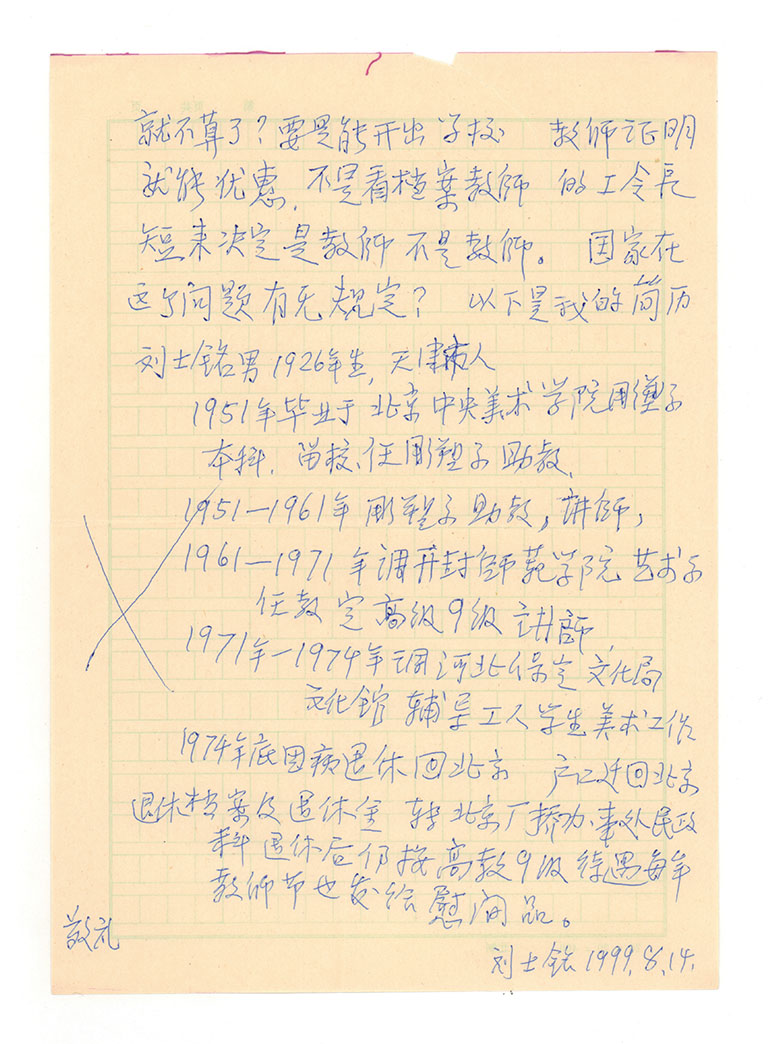 就不算了？要是能开出学校 教师证明
就能优惠，不是看档案教师 的工令长
短来决定是教师不是教师。 国家在
这个问题有无规定？ 以下是我的简历
刘士铭男1926年生，天津市人
1951年毕业于北京中央美术学院雕塑系
本科．留校．任雕塑系助教．
1951—1961年雕塑系助教，讲师，
1961—1971年调开封师范学院 艺术系
任教 定高级9级讲师．
1971年—1974年调河北保定文化局
文化馆 辅导工人学生美术工作
1974年底因病退休回北京 户口迁回北京
退休档案及退休金 转北京厂桥办事处民政
科 退休后仍按高教9级待遇每年
教师节也发给慰问品。
敬礼
刘士铭1999.8.14.